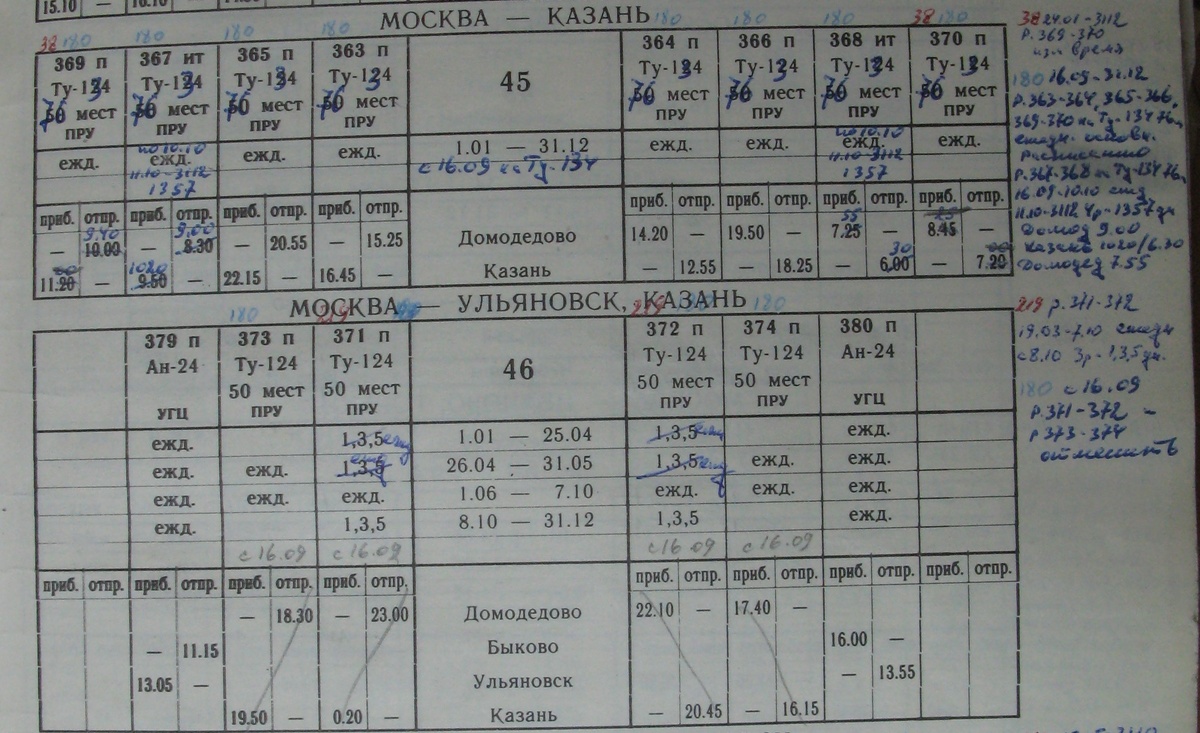 15.10 —
МОСКВА — КАЗАНЬ
38 180 180 180 180 180 180 180 38 180
369 п 367 ит 365 п 363 п 45 364 п 366 п 368 ит 370 п
Ту-134 Ту-134 Ту-134 Ту-134 Ту-134 Ту-134 Ту-134 Ту-134
76 мест 76 мест 76 мест 76 мест 76 мест 76 мест 76 мест 76 мест
ПРУ ПРУ ПРУ ПРУ ПРУ ПРУ ПРУ ПРУ
по 10.10 по 10.10
ежд. ежд. ежд. ежд. 1.01 — 31.12 ежд. ежд. ежд. ежд.
11.10-31.12 с 16.09 на Ту-134 11.10-31.12
1357 1357
приб. отпр. приб. отпр. приб. отпр. приб. отпр. приб. отпр. приб. отпр. приб. отпр. приб. отпр.
9.40 9.00 55 25
— 10.00 — 8.30 — 20.55 — 15.25 Домодедово 14.20 — 19.50 — 7.25 — 8.45 —
00 1020 30 00
11.20 — 9.50 — 22.15 — 16.45 — Казань — 12.55 — 18.25 — 6.00 — 7.20
МОСКВА — УЛЬЯНОВСК, КАЗАНЬ
180 219 180 219 180 180
379 п 373 п 371 п 46 372 п 374 п 380 п
Ан-24 Ту-124 Ту-124 Ту-124 Ту-124 Ан-24
50 мест 50 мест 50 мест 50 мест
УГЦ ПРУ ПРУ ПРУ ПРУ УГЦ
ежд. 1,3,5 ежд 1.01 — 25.04 1,3,5 ежд ежд.
ежд. ежд. 1,3,5 ежд 26.04 — 31.05 1,3,5 ежд ежд. ежд.
ежд. ежд. ежд. 1.06 — 7.10 ежд. ежд. ежд.
ежд. 1,3,5 8.10 — 31.12 1,3,5 ежд.
с 16.09 с 16.09 с 16.09 с 16.09
приб. отпр. приб. отпр. приб. отпр. приб. отпр. приб. отпр. приб. отпр. приб. отпр. приб. отпр.
— 18.30 — 23.00 Домодедово 22.10 — 17.40 —
— 11.15 Быково 16.00 —
13.05 — Ульяновск — 13.55
19.50 — 0.20 — Казань — 20.45 — 16.15
38 24.01-31.12
Р.369-370
изм время
180 16.09-31.12
Р.363-364, 365-366,
369-370 на Ту-134 76м
ежедн. основн.
расписанию
Р.367-368 на Ту-134 76м
16.09-10.10 ежд
11.10-31.12 4р-1357 дн
Домод 9.00
Казань 1020/6.30
Домодед 7.55
219 р.371-372
19.03-7.10 ежедн
с 8.10 3р-1,3,5 дн.
180 с 16.09
Р.371-372 —
р 373-374
отменить